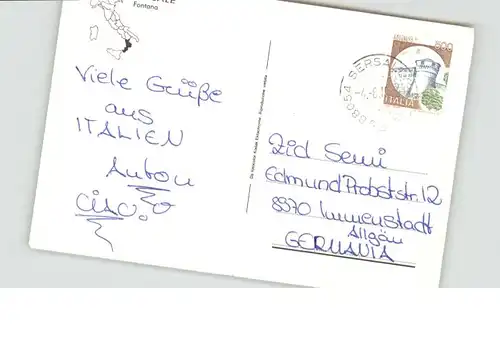 ALE
Fontana
Viele Grüße
aus
ITALIEN
Anton
CIAO!
SERSA
500
ITALIA
Zid Semi
Edmund Probststr. 12
8970 Immenstadt
Allgäu
GERMANIA